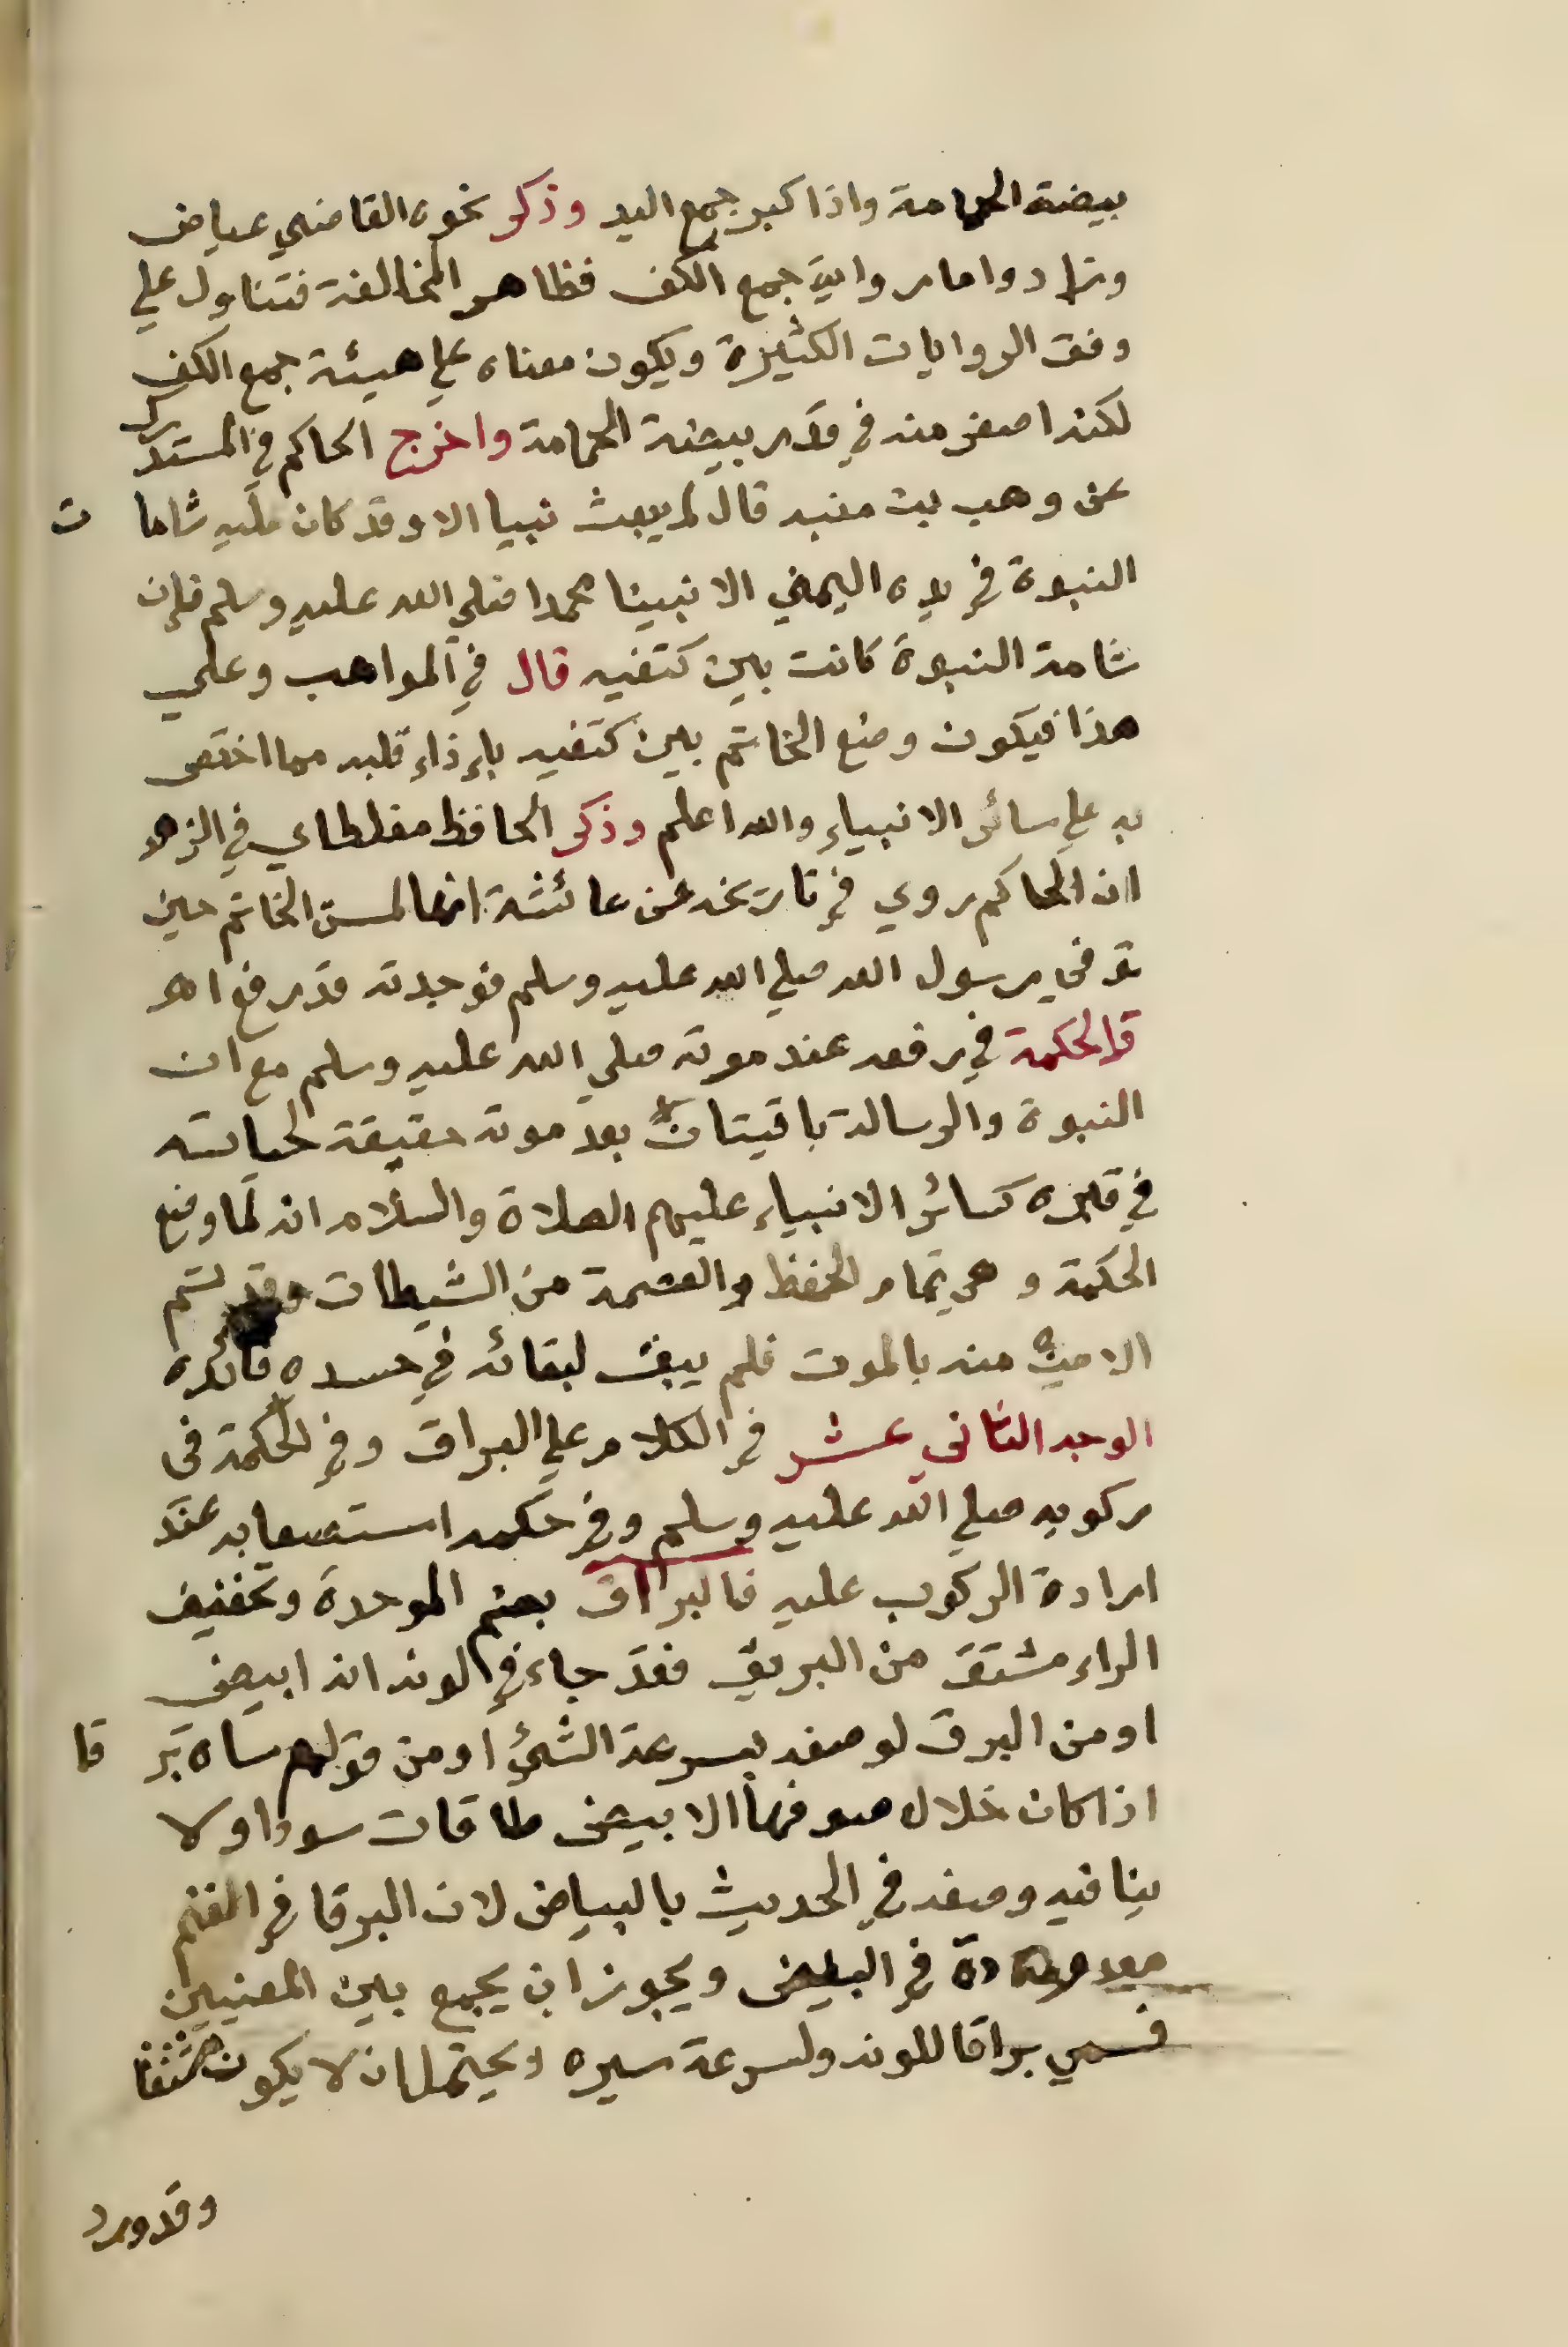 بيضة الحمامة واذا كبر جمع اليد وذكر نحوه القاضي عياض
وزاد واما رواية جمع الكف فظاهر المخالفة فتناول علي
وفق الروايات الكثيرة ويكون معناه علي هيئة جمع الكف
لكنه اصغر منه في قدر بيضة الحمامة واخرج الحاكم في المستدرك
عن وهب بن منبه قال لم يبعث نبيا الا وقد كان عليه شامات
النبوة في يده اليمني الا نبينا محمدا صلي الله عليه وسلم فإن
شامة النبوة كانت بين كتفيه قال في المواهب وعلي
هذا فيكون وضع الخاتم بين كتفيه بإزاء قلبه مما اختص
به علي سائر الانبياء والله اعلم وذكر الحافظ مغلطاي في الزهر
ان الحاكم روي في تاريخه عن عائشة انها لمست الخاتم حين
توفي رسول الله صلي الله عليه وسلم فوجدته قد رفع اهـ
قال الحكمة في رفعه عند موته صلي الله عليه وسلم مع ان
النبوة والرسالة باقيتان بعد موته حقيقة لحياته
في قبره كسائر الانبياء عليهم الصلاة والسلام انه لما وضع
الحكمة وهي تمام الحفظ والعصمة من الشيطان وقد تم
الامن منه بالموت فلم يبق لبقائه في جسده فائدة
الوجه الثاني عشر في الكلام علي البراق وفي الحكمة في
ركوبه صلي الله عليه وسلم وفي حكمه استصعابه عند
ارادة الركوب عليه فالبراق بضم الموحدة وتخفيف
الراء مشتق من البريق فقد جاء في لونه انه ابيض
او من البرق لوصفه بسرعة الشئ او من قولهم شاة برقا
اذا كان خلال صوفها الابيض طاقات سودا ولا
ينافيه وصفه في الحديث بالبياض لان البرقا في الغنم
معدودة في البيض ويجوز ان يجمع بين المعنيين
فسمي براقا للونه ولسرعة سيره ويحتمل ان لا يكون مشتقا
وقد ورد